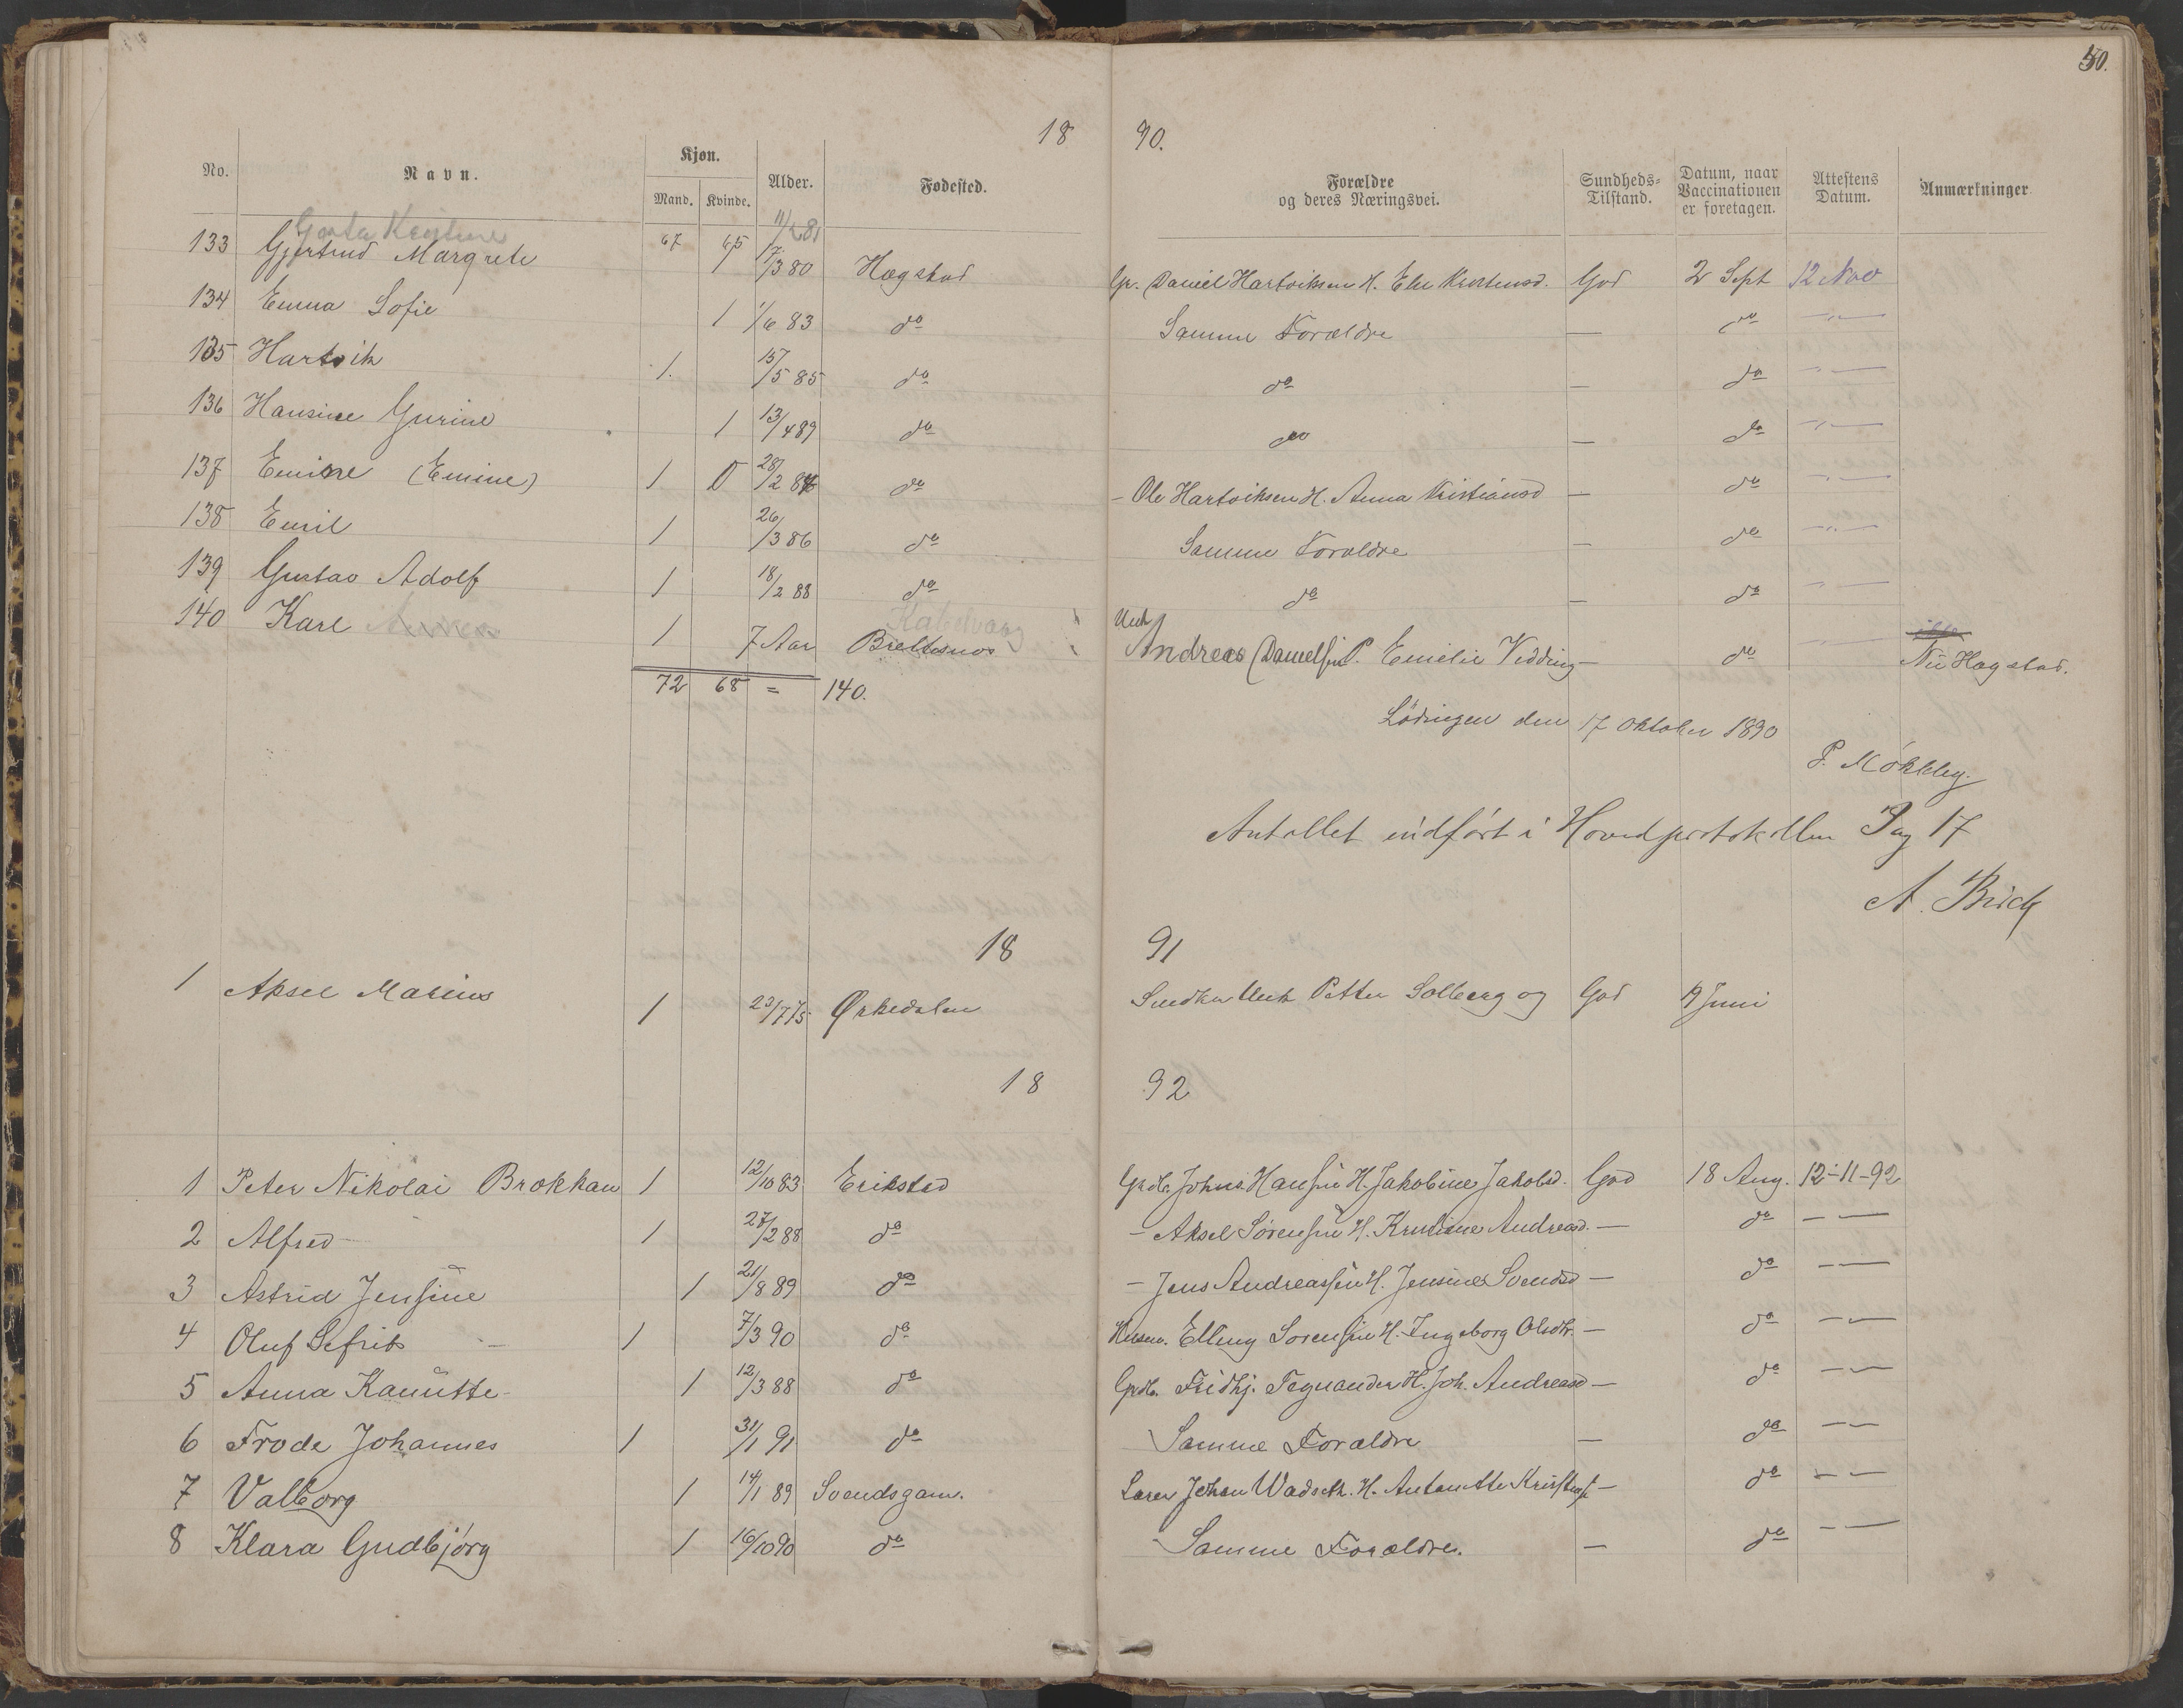 50.
18 90.
No. Navn. Kjøn. Mand. Kvinde. Alder. Fødested. Forældre og deres Næringsvei. Sundheds-Tilstand. Datum, naar Vaccinationen er foretagen. Attestens Datum. Anmærkninger
67 65
133 Gjertrud Margrete 1 7/3 80 Hægstad Gr. Daniel Hartviksen H. Else God 2 Sept 12 Nov
134 Emma Sofie 1 1/6 83 do Samme Forældre — do — " —
135 Hartvik 1. 15/5 85 do do — do — " —
136 Hansine Gurine 1 13/4 89 do do — do — " —
137 Emine (Emine) 1 28/2 84 do - Ole Hartviksen H. Anna Kristiansd — do — " —
138 Emil 1 26/3 86 do Samme Forældre — do — " —
139 Gustav Adolf 1 18/2 88 do do — do — " —
Kabelvaag
140 Karl 1 7 Aar Ugk Andreas Danielsen P. Emelie Vedding — do Nu Hægstad.
72 68 = 140.
Lødingen den 17 Oktober 1890
P. Møkleby.
Antallet indført i Hovedprotokollen Pag 17
A. Brick
18 91
1 Aksel Marius 1 23/7 75 Ørkedalen Petter Solberg og God 9 Juni
18 92
1 Peter Nikolai Brokkan 1 12/10 83 Erikstad Grdb. Johns. Hansen H. Jakobine Jakobsd. God 18 Aug. 12-11-92
2 Alfred 1 27/2 88 do - Aksel Sørensen H. Kristiane Andreasd. — do — —
3 Astrid Jensine 1 21/8 89 do - Jens Andreassen H. Jensine Svendsd — do — —
4 Oluf Sefrits 1 7/3 90 do Husm. Elling Sorensen H. Ingeborg Olsdtr. — do — —
5 Anna Kamitte 1 12/3 88 do Grdb. Fridhj. Tegnander H. Joh. Andreasd — do — —
6 Frode Johannes 1 31/1 91 do Samme Forældre — do — —
7 Valborg 1 14/1 89 Svendsgam. Lærer Johan Wadseth. H. Antonette — do — —
8 Klara Gudbjørg 1 16/10 90 do Samme Forældre. — do — —